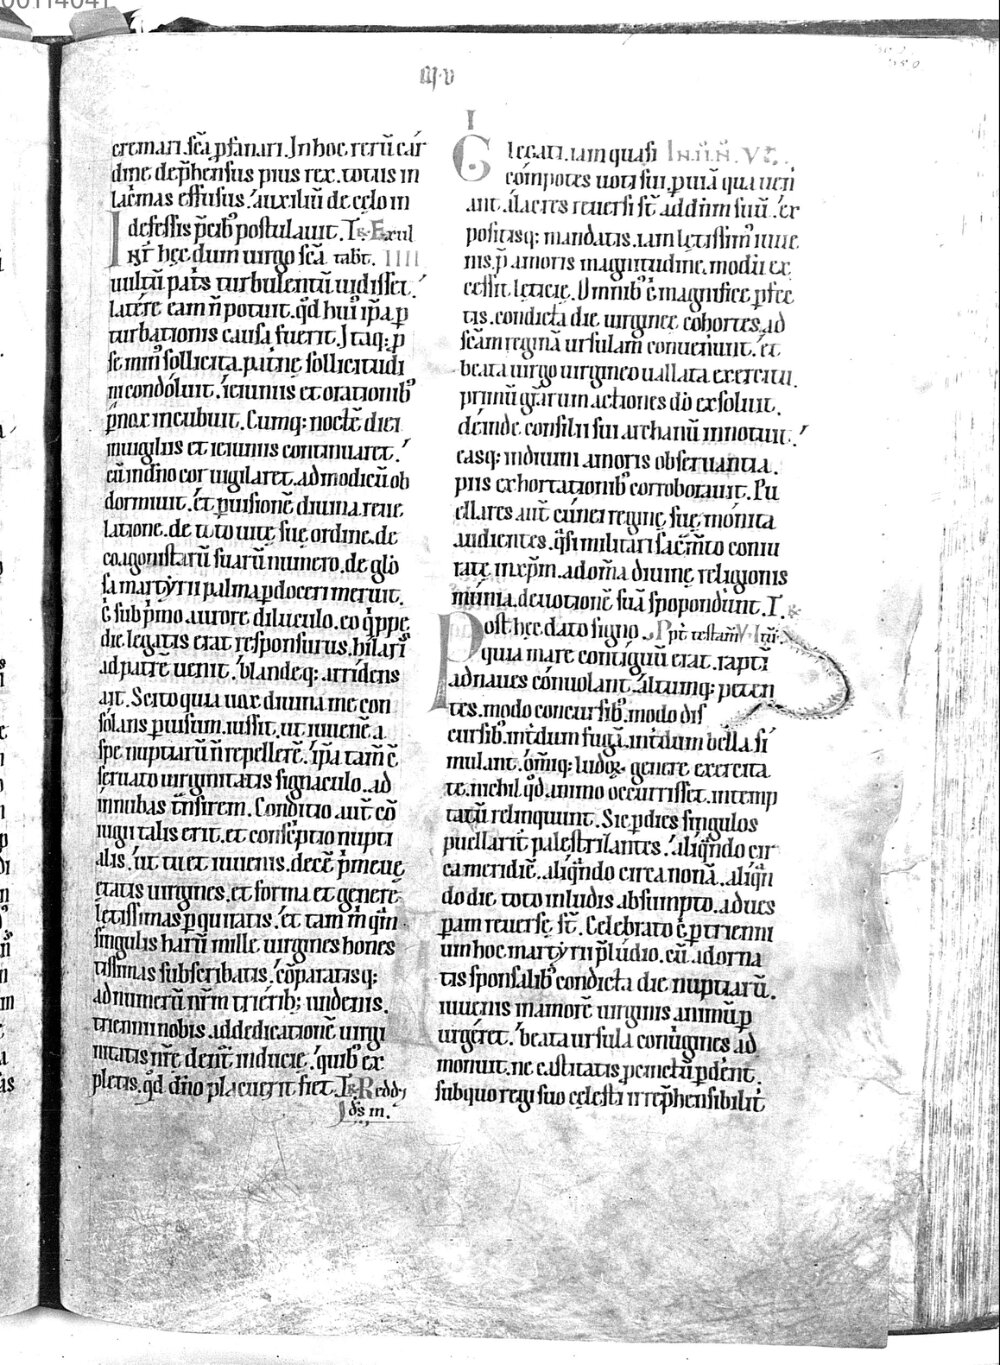 cremari. sc̄a ꝓfanari. In hoc rerū car
dine dep̄hensus pius rex. totus in
lac̄mas effusus. auxiliū de cęlo in
defessis p̄cibꝰ postulauit. Exul
hęc dum uirgo sc̄a IIII
uultū pat̄s turbulentū uidisset.
latere eam n̄ potuit. qd̄ huiꝰ ip̄a ꝑ
turbationis causa fuerit. Itaq; ꝑ
se sollicita. pat̄nę sollicitudi
ni condoluit. ieiuniis et orationibꝰ
ꝓnox incubuit. Cumq; noctē diei
inuigiliis et ieiuniis continuaret.
cū in dn̄o cor uigilaret. ad modicū ob
dormiuit. et ꝑ uisionē diuina reue
latione. de toto uitę suę ordine. de
coagonistarū suarū numero. de glo
sa martyrii palma ꝑdoceri meruit.
aurorę diluculo. eo
die legatis erat responsurus. hilari
ad patrē uenit. blandeq; arridens
ait. Scito quia uox diuina me con
solans ꝑ uisum. iussit. ut iuuenē a
spe nuptiarū n̄ repellerē. ip̄a tam̄
seruato uirginitatis signaculo. ad
innubas t̄nsirem. Conditio aut̄ cō
iugii talis erit. et conscptio nupti
alis. ut tu et iuuenis. decē p̄meuę
ętatis uirgines. et forma et genere
lectissimas ꝑquiratis. et tam m̄ qm̄
singulis harū mille uirgines hones
tissimas subscribatis. cōparatisq;
ad numerū nr̄m trierib; undenis.
triennii nobis. ad dedicationē uirgi
nitatis nr̄ę dent̄ inducię. quibꝰ ex
pletis. qd̄ dn̄o placuerit fiet. Redd
ds̄ m.
III · V
I
legati. iam quasi
compotes uoti sui. ꝑ uiā qua uen̄
ant. alacres reuersi st̄ ad dn̄m suū. ex
positisq; mandatis. iam lętissimꝰ iuue
nis. p̄ amoris magnitudine. modū ex
cessit lęticię. Omnibꝰ ē magnifice ꝑfec
tis. condicta die uirgineę cohortes. ad
sc̄am reginā ursulam conueniunt. et
beata uirgo uirgineo uallata exercitu.
primū gr̄arum actiones dō exsoluit.
deinde consilii sui archanū innotuit.
easq; in diuini amoris obseruantia.
piis exhortationibꝰ corroborauit. Pu
ellares aut̄ cunei reginę suę monita
audientes. qsi militari sac̄mto coniu
ratę in xp̄m. ad om̄a diuinę religionis
munia. deuotionē suā spoponderunt.
Post hęc dato signo
quia mare contiguū erat. rapti
ad naues conuolant. altumq; peten
tes. modo concursibꝰ. modo dis
cursibꝰ. int̄dum fugā. int̄dum bella si
mulant. om̄iq; ludoꝝ genere exercita
tę. nichil qd̄ animo occurrisset. intemp
tatū relinquunt. Sic ꝑ dies singulos
puellarit̄ palestrilantes. aliqn̄do cir
ca meridiē. aliqn̄do circa nonā. aliqn̄
do die toto in ludis absumpto. ad ues
ꝑam reuersę st̄. Celebrato ꝑ trienni
um hoc martyrii p̄ludio. cū adorna
tis sponsalibꝰ condicta die nuptiarū.
iuuenis in amorē uirginis animū ꝑ
urgeret. beata ursula conuirgines ad
monuit. ne castitatis penetū ꝑdent.
sub quo regi suo cęlesti irrep̄hensibilit̄